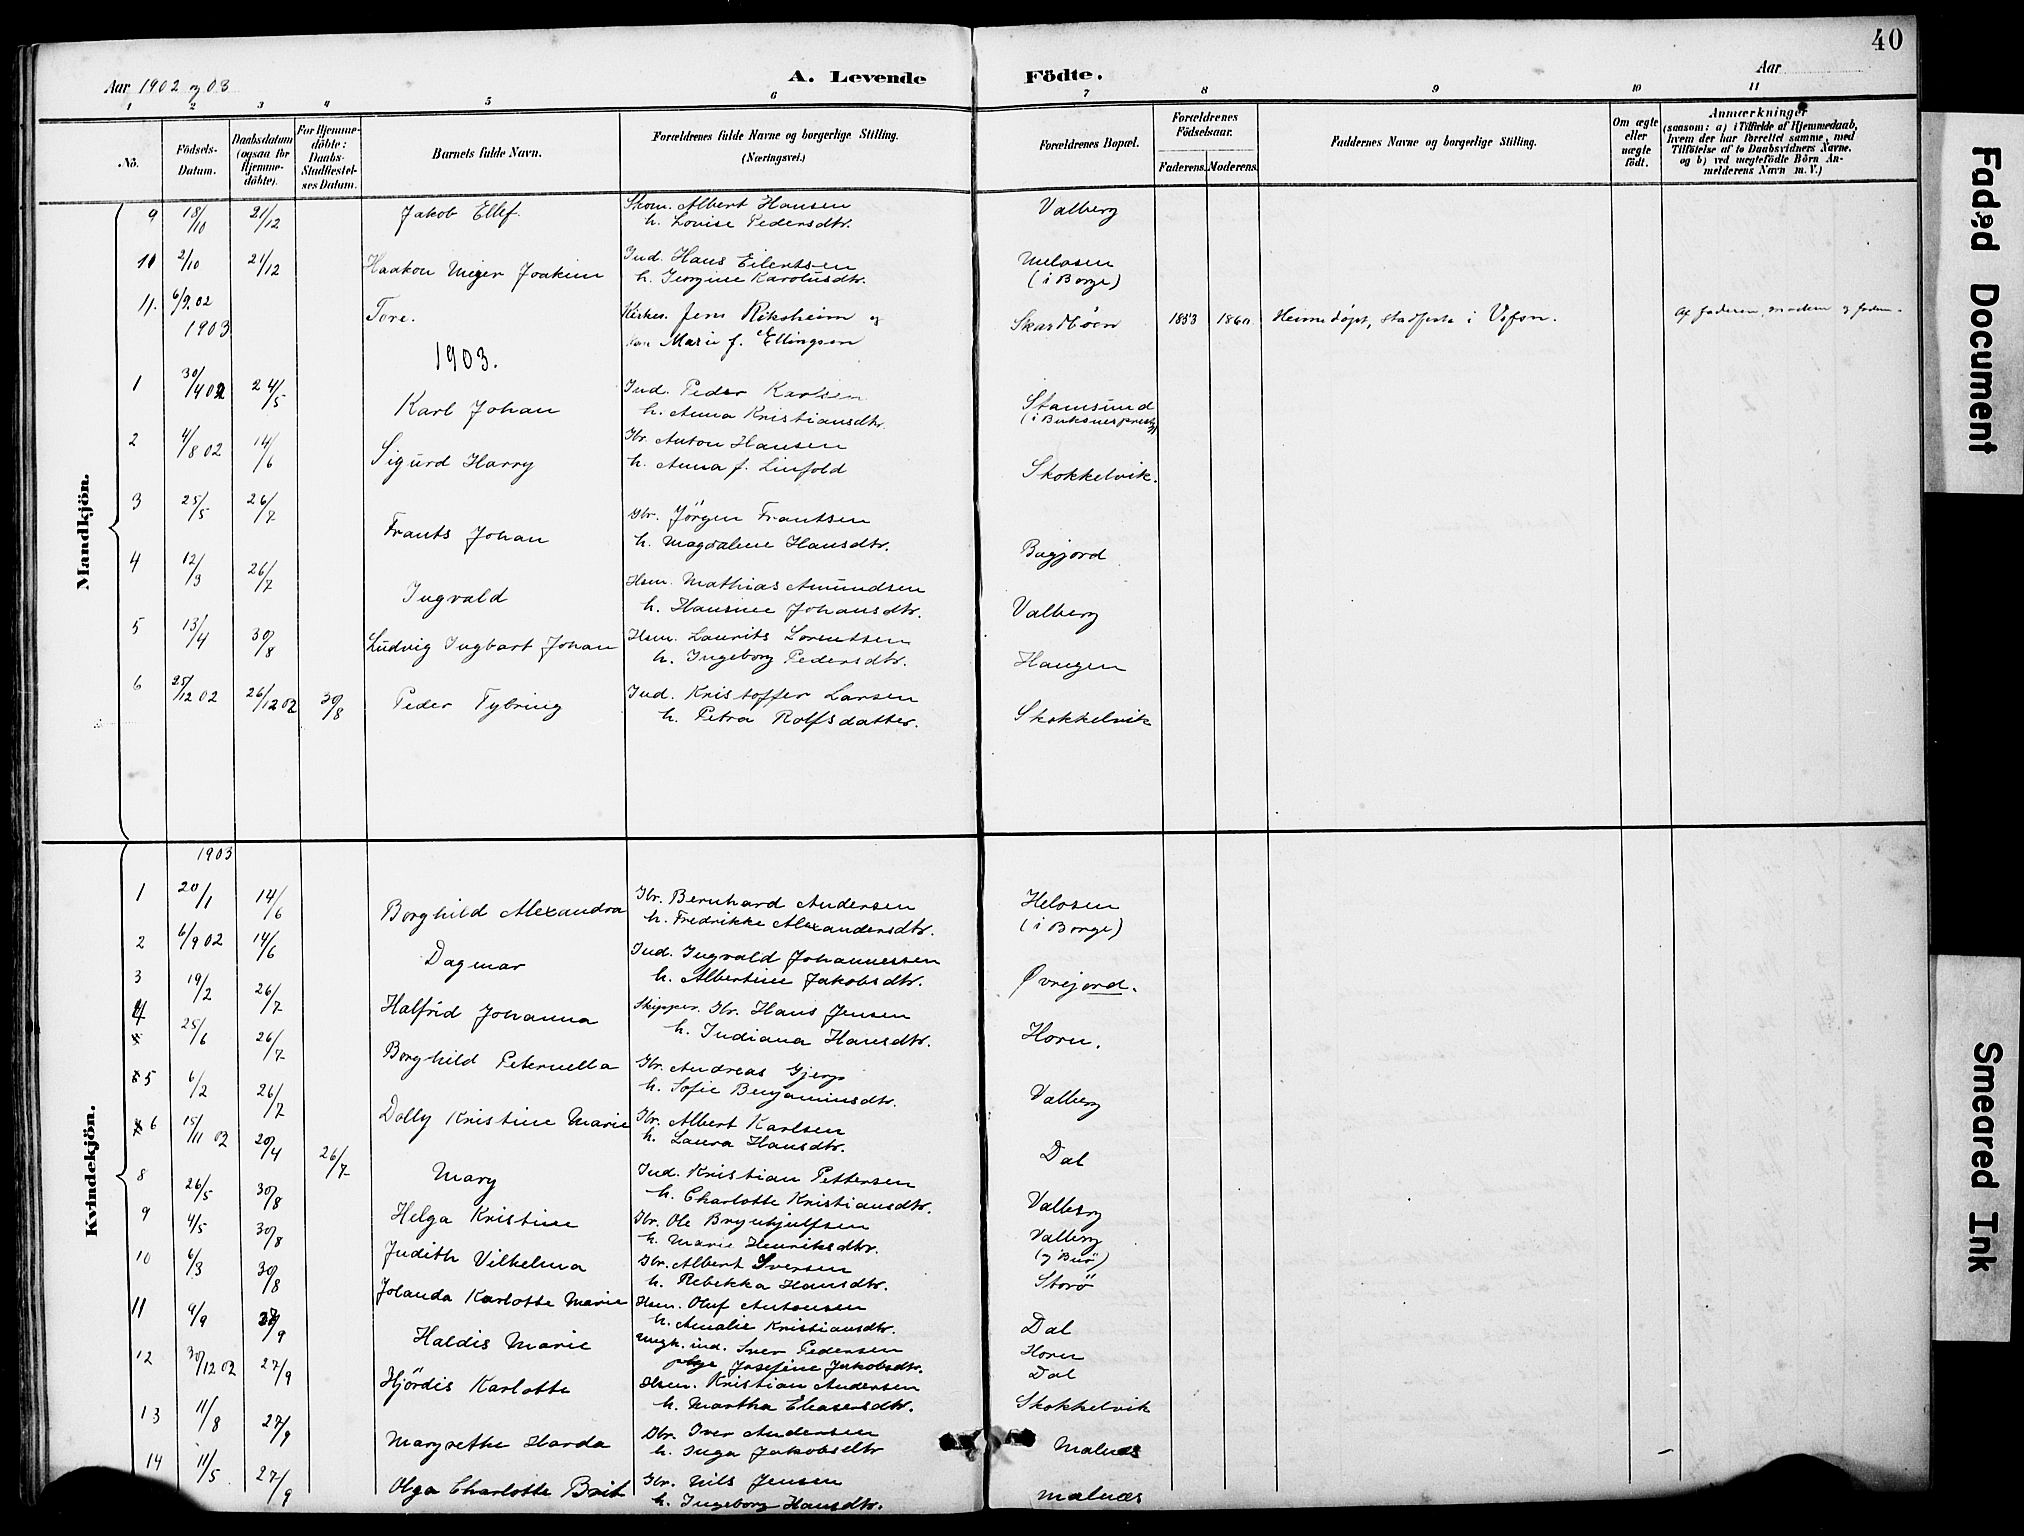 40
Aar 1902 og 03
A. Levende Födte.
Aar
1 2 3 4 5 6 7 8 9 10 11
No.
Födsels-Datum.
Daabsdatum (ogsaa for Hjemme-döbte).
For Hjemme-döbte: Daabs-Stadfæstel-ses Datum.
Barnets fulde Navn.
Forældrenes fulde Navne og borgerlige Stilling. (Næringsvei.)
Forældrenes Bopæl.
Forældrenes Födselsaar.
Faderens. Moderens.
Faddernes Navne og borgerlige Stilling.
Om ægte eller uægte födt.
Anmærkninger
(saasom: a) i Tilfælde af Hjemmedaab, hvem der har forrettet samme, med Tilföielse af to Daabsvidners Navne, og b) ved uægtefödte Börn An-melderens Navn m. V.)
Mandkjön.
9 18/10 21/12 Jakob Ellef. Skom. Albert Hansen Valberg
h. Louise Pedersdtr.
10 2/10 21/12 Haakon Meyer Joakim Ind. Hans Eilertsen
h. Georgine Karolusdtr. (i Borge)
11. 6/9 02 Tore. Kirkes. Jens Riksheim og Skardtöen 1853 1860 Heimedöpt, stadfesta i Vefsn.
1903 Marie f. Ellingsen
1903.
1 30/4 02 24/5 Karl Johan Ind. Peder Karlsen Stamsund
h. Anna Kristiansdtr.
2 4/8 02 14/6 Sigurd Harry Gbr. Anton Hansen
h. Anna f. Linfold Skokkelvik.
3 25/5 26/7 Frants Johan Gbr. Jörgen Frantsen
h. Magdalene Hansdtr. Bugjord
4 12/3 26/7 Ingvald Hsm. Mathias Amundsen
h. Hansine Johansdtr. Valberg
5 13/4 30/8 Ludvig Ingbart Johan Hsm. Laurits Lorentsen
h. Ingeborg Pedersdtr. Haugen
6 25/12 02 26/12 02 30/8 Peder Tybring Ind. Kristoffer Larsen
h. Petra Rolfsdatter. Skokkelvik
Kvindekjön.
1903
1 20/1 14/6 Borghild Alexandra Gbr. Bernhard Andersen Helosen
h. Fredrikke Alexandersdtr. (i Borge)
2 6/9 02 14/6 Dagmar Ind. Ingvald Johannessen
h. Albertine Jakobsdtr. Øvrejord.
3 19/2 26/7 Halfrid Johanna Skipper. Gbr. Hans Jensen
h. Indiana Hansdtr. Horn.
4 25/6 26/7 Borghild Peternella Gbr. Andreas Gjerp
h. Sofie Benjaminsdtr. Valberg
5 6/2 26/7 Dolly Kristine Marie Gbr. Albert Karlsen
h. Laura Hansdtr. Dal
6 15/11 02 20/4 26/7 Mary Ind. Kristian Pettersen
h. Charlotte Kristiansdtr. Valberg
8 26/5 30/8 Helga Kristine Gbr. Ole Brynhjulfsen Valberg
h. Marie Henriksdtr.
9 4/5 30/8 Judith Vilhelma Gbr. Albert Iversen
h. Rebekka Hansdtr. Storö
10 6/3 30/8 Jolanda Karlotte Marie Hsm. Oluf Antonsen
h. Amalie Kristiansdtr. Dal
11 4/9 Haldis Marie Ungk. ind. Iver Pedersen Horn
pige Josefine Jakobsdtr. Dal
12 30/12 02 27/9 Hjördis Karlotte Hsm. Kristian Andersen
h. Martha Eleasersdtr. Skokkelvik
13 11/8 27/9 Margrethe Harda Gbr. Iver Andersen
h. Inga Jakobsdtr Malnæs
14 11/5 27/9 Olga Charlotte Brit Gbr. Nils Jensen
h. Ingeborg Hansdtr. Malnæs
Faded Document
Smeared Ink